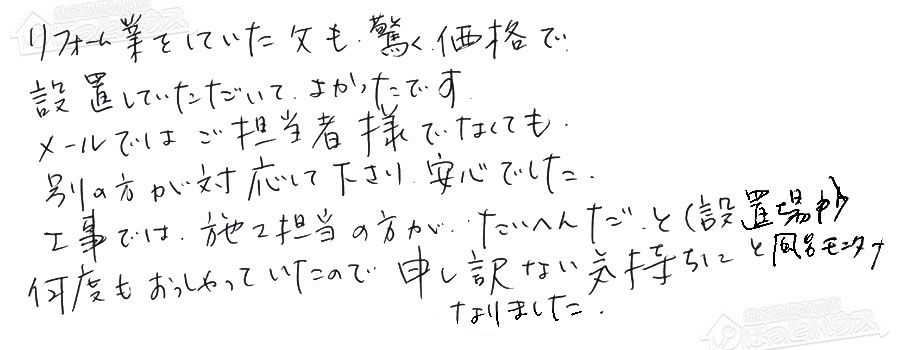 リフォーム業をしていた父も、驚く価格で
設置していただいて、よかったです。
メールではご担当者様でなくても、
別の方が対応して下さり、安心でした。
工事では、施工担当の方が、たいへんだ、と(設置場所
と風呂モニタ
何度もおっしゃっていたので申し訳ない気持ちに
なりました。
ほっとハウス